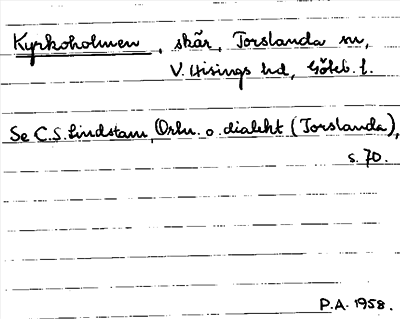 Kyrkoholmen, skär, Torslanda sn,
V. Hisings hd, Göteb. l.
Se C.S. Lindstam, Ortn. o. dialekt (Torslanda),
s. 70.
P.A. 1958.